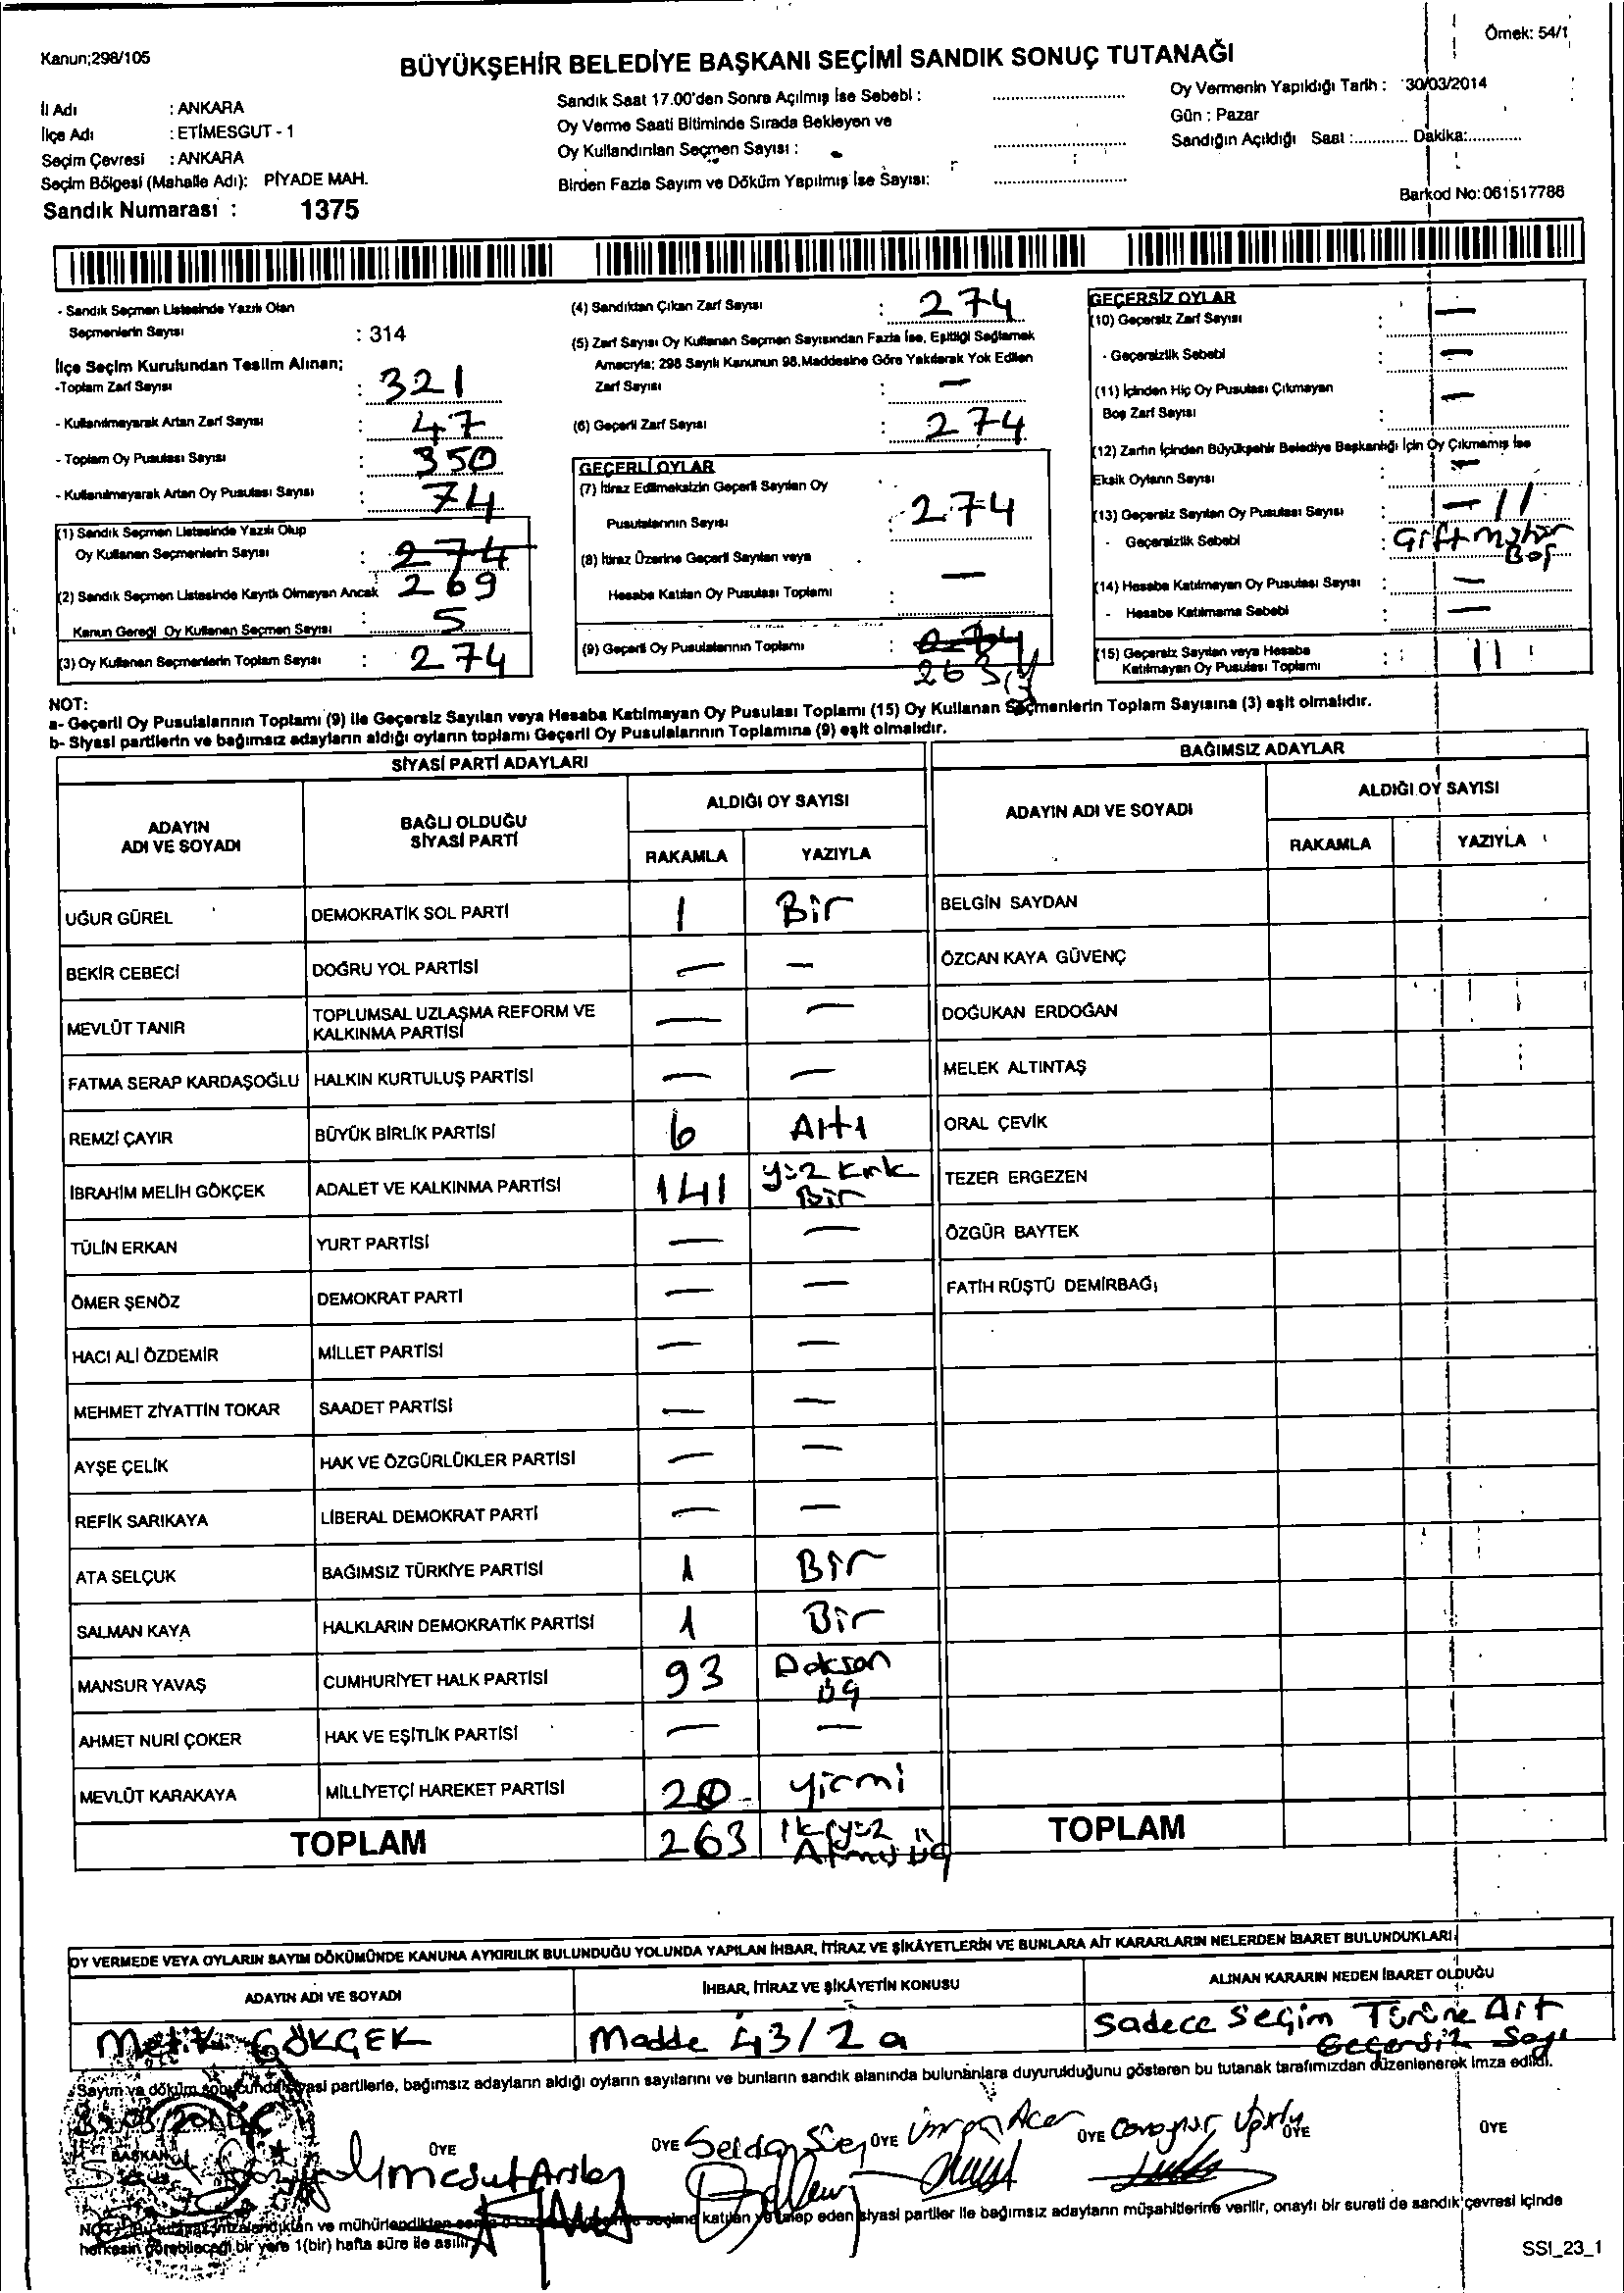 Kanun;298/105
Örnek: 54/1
BÜYÜKŞEHİR BELEDİYE BAŞKANI SEÇİMİ SANDIK SONUÇ TUTANAĞI
İl Adı : ANKARA
İlçe Adı : ETİMESGUT - 1
Seçim Çevresi : ANKARA
Seçim Bölgesi (Mahalle Adı): PİYADE MAH.
Sandık Numarası : 1375
Sandık Saat 17.00'den Sonra Açılmış İse Sebebi :
Oy Verme Saati Bitiminde Sırada Bekleyen ve
Oy Kullandırılan Seçmen Sayısı :
Birden Fazla Sayım ve Döküm Yapılmış İse Sayısı:
Oy Vermenin Yapıldığı Tarih : 30/03/2014
Gün : Pazar
Sandığın Açıldığı Saat :............ Dakika:............
Barkod No:061517786
- Sandık Seçmen Listesinde Yazılı Olan
Seçmenlerin Sayısı : 314
İlçe Seçim Kurulundan Teslim Alınan;
-Toplam Zarf Sayısı : 321
- Kullanılmayarak Artan Zarf Sayısı : 47
- Toplam Oy Pusulası Sayısı : 350
- Kullanılmayarak Artan Oy Pusulası Sayısı : 74
(1) Sandık Seçmen Listesinde Yazılı Olup
Oy Kullanan Seçmenlerin Sayısı : 274
269
(2) Sandık Seçmen Listesinde Kayıtlı Olmayan Ancak
Kanun Gereği Oy Kullanan Seçmen Sayısı 5
(3) Oy Kullanan Seçmenlerin Toplam Sayısı : 274
(4) Sandıktan Çıkan Zarf Sayısı : 274
(5) Zarf Sayısı Oy Kullanan Seçmen Sayısından Fazla İse, Eşitliği Sağlamak
Amacıyla; 298 Sayılı Kanunun 98.Maddesine Göre Yakılarak Yok Edilen
Zarf Sayısı : —
(6) Geçerli Zarf Sayısı : 274
GEÇERLİ OYLAR
(7) İtiraz Edilmeksizin Geçerli Sayılan Oy
Pusulalarının Sayısı : 274
(8) İtiraz Üzerine Geçerli Sayılan veya
Hesaba Katılan Oy Pusulası Toplamı : —
(9) Geçerli Oy Pusulalarının Toplamı : 274
263
GEÇERSİZ OYLAR
(10) Geçersiz Zarf Sayısı : —
- Geçersizlik Sebebi : —
(11) İçinden Hiç Oy Pusulası Çıkmayan
Boş Zarf Sayısı : —
(12) Zarfın İçinden Büyükşehir Belediye Başkanlığı İçin Oy Çıkmamış İse
Eksik Oyların Sayısı —
(13) Geçersiz Sayılan Oy Pusulası Sayısı : — 11
- Geçersizlik Sebebi : Çift mühür
Boş
(14) Hesaba Katılmayan Oy Pusulası Sayısı : —
- Hesaba Katılmama Sebebi : —
(15) Geçersiz Sayılan veya Hesaba
Katılmayan Oy Pusulası Toplamı : 11
NOT:
a- Geçerli Oy Pusulalarının Toplamı (9) ile Geçersiz Sayılan veya Hesaba Katılmayan Oy Pusulası Toplamı (15) Oy Kullanan Seçmenlerin Toplam Sayısına (3) eşit olmalıdır.
b- Siyasi partilerin ve bağımsız adayların aldığı oyların toplamı Geçerli Oy Pusulalarının Toplamına (9) eşit olmalıdır.
SİYASİ PARTİ ADAYLARI
ADAYIN
ADI VE SOYADI
BAĞLI OLDUĞU
SİYASİ PARTİ
ALDIĞI OY SAYISI
RAKAMLA YAZIYLA
UĞUR GÜREL DEMOKRATİK SOL PARTİ 1 Bir
BEKİR CEBECİ DOĞRU YOL PARTİSİ — —
MEVLÜT TANIR TOPLUMSAL UZLAŞMA REFORM VE
KALKINMA PARTİSİ — —
FATMA SERAP KARDAŞOĞLU HALKIN KURTULUŞ PARTİSİ — —
REMZİ ÇAYIR BÜYÜK BİRLİK PARTİSİ 6 Altı
İBRAHİM MELİH GÖKÇEK ADALET VE KALKINMA PARTİSİ 141 yüz kırk
Bir
TÜLİN ERKAN YURT PARTİSİ — —
ÖMER ŞENÖZ DEMOKRAT PARTİ — —
HACI ALİ ÖZDEMİR MİLLET PARTİSİ — —
MEHMET ZİYATTİN TOKAR SAADET PARTİSİ — —
AYŞE ÇELİK HAK VE ÖZGÜRLÜKLER PARTİSİ — —
REFİK SARIKAYA LİBERAL DEMOKRAT PARTİ — —
ATA SELÇUK BAĞIMSIZ TÜRKİYE PARTİSİ 1 Bir
SALMAN KAYA HALKLARIN DEMOKRATİK PARTİSİ 1 Bir
MANSUR YAVAŞ CUMHURİYET HALK PARTİSİ 93 Doksan
üç
AHMET NURİ ÇOKER HAK VE EŞİTLİK PARTİSİ — —
MEVLÜT KARAKAYA MİLLİYETÇİ HAREKET PARTİSİ 20 yirmi
TOPLAM 263 ikiyüz
Altmış üç
BAĞIMSIZ ADAYLAR
ADAYIN ADI VE SOYADI
ALDIĞI OY SAYISI
RAKAMLA YAZIYLA
BELGİN SAYDAN
ÖZCAN KAYA GÜVENÇ
DOĞUKAN ERDOĞAN
MELEK ALTINTAŞ
ORAL ÇEVİK
TEZER ERGEZEN
ÖZGÜR BAYTEK
FATİH RÜŞTÜ DEMİRBAĞ
TOPLAM
OY VERMEDE VEYA OYLARIN SAYIM DÖKÜMÜNDE KANUNA AYKIRILIK BULUNDUĞU YOLUNDA YAPILAN İHBAR, İTİRAZ VE ŞİKÂYETLERİN VE BUNLARA AİT KARARLARIN NELERDEN İBARET BULUNDUKLARI
ADAYIN ADI VE SOYADI
İHBAR, İTİRAZ VE ŞİKÂYETİN KONUSU
ALINAN KARARIN NEDEN İBARET OLDUĞU
GÖKÇEK
Madde 43/2 a
Sadece Seçim Türüne Ait
Geçersiz Sayı
Sayım ve döküm sonucunda siyasi partilerle, bağımsız adayların aldığı oyların sayılarını ve bunların sandık alanında bulunanlara duyurulduğunu gösteren bu tutanak tarafımızdan düzenlenerek imza edildi.
BAŞKAN ÜYE ÜYE ÜYE ÜYE ÜYE ÜYE
katılan ve talep eden siyasi partiler ile bağımsız adayların müşahitlerine verilir, onaylı bir sureti de sandık çevresi içinde
herkesin görebileceği bir yere 1(bir) hafta süre ile asılır.
SSI_23_1